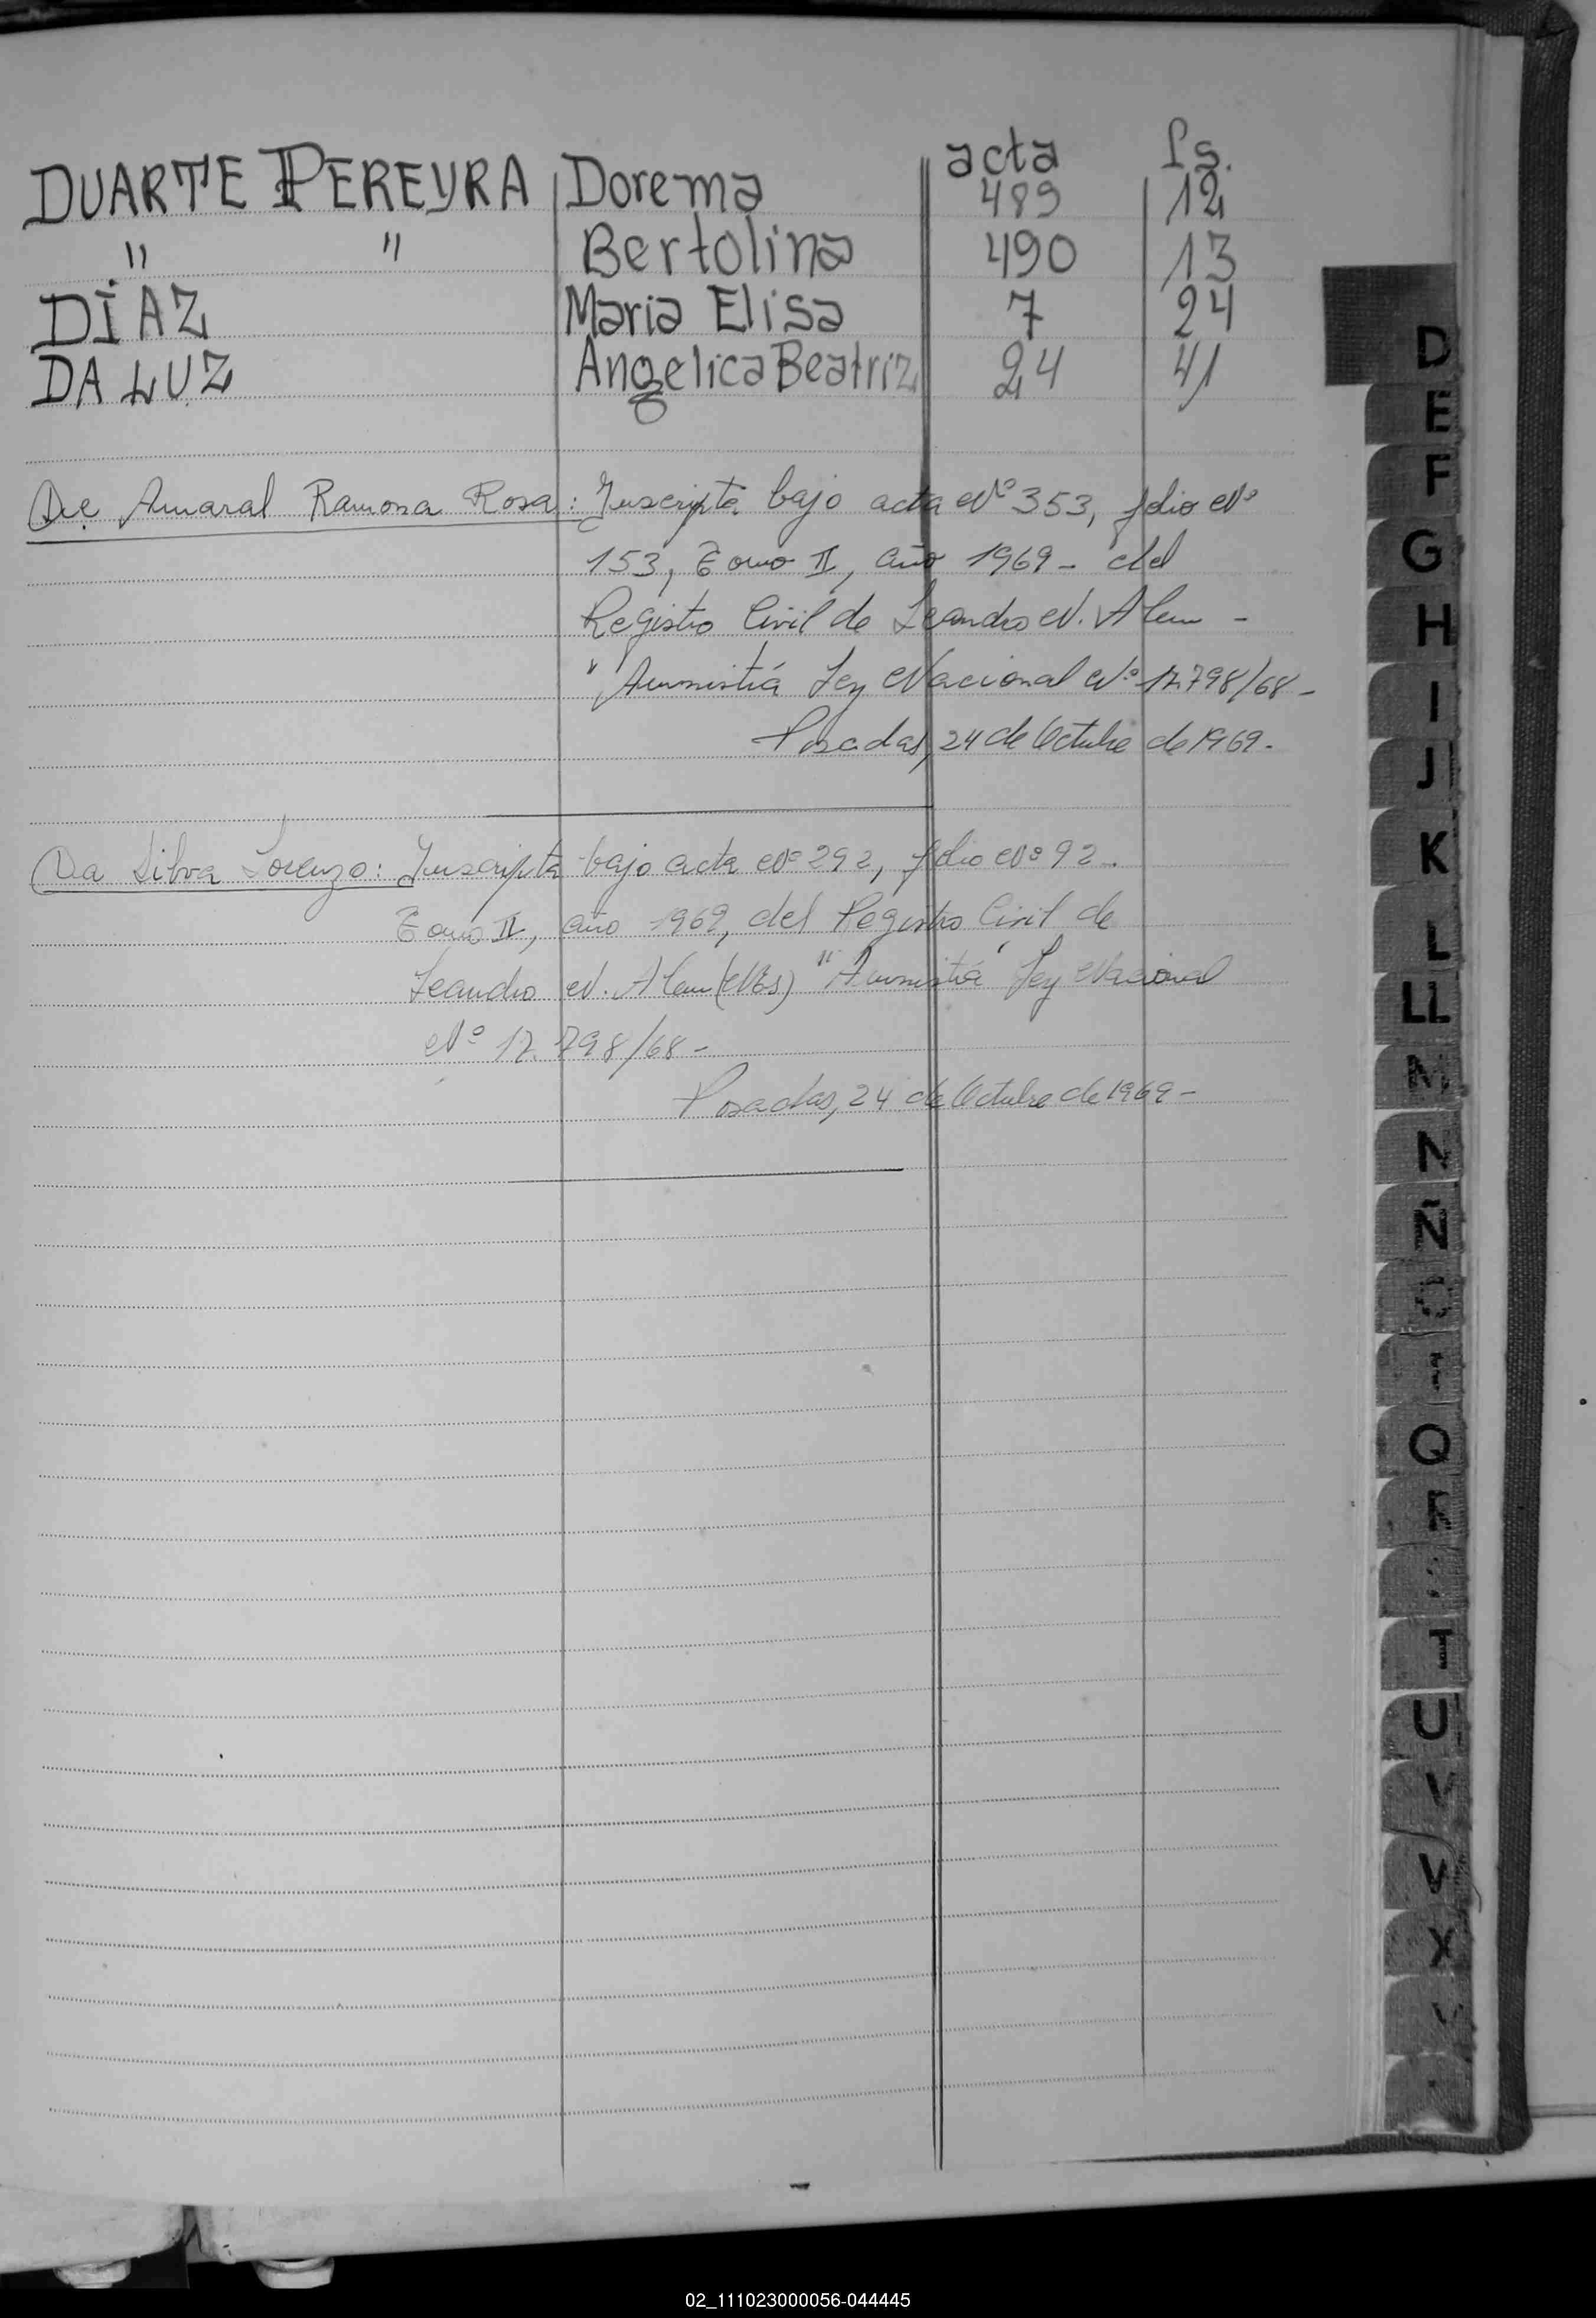 acta fs.
DUARTE PEREYRA Dorema 489 12
" " Bertolina 490 13
DÍAZ Maria Elisa 7 24
DA LUZ Angelica Beatriz 24 41
De Amaral Ramona Rosa: Inscripta bajo acta Nº 353, folio Nº
153, Tomo II, año 1969 - del
Registro Civil de Leandro N. Alem -
"Amnistía Ley Nacional Nº 17.798/68 -
Posadas, 24 de Octubre de 1969.
Da Silva Lorenzo: Inscripta bajo acta Nº 292, folio Nº 92.
Tomo II, año 1969, del Registro Civil de
Leandro N. Alem (Mes) "Amnistía" Ley Nacional
Nº 17.798/68 -
Posadas, 24 de Octubre de 1969 -
D
E
F
G
H
I
J
K
L
LL
M
N
Ñ
O
Q
R
T
U
V
V
X
02_111023000056-044445